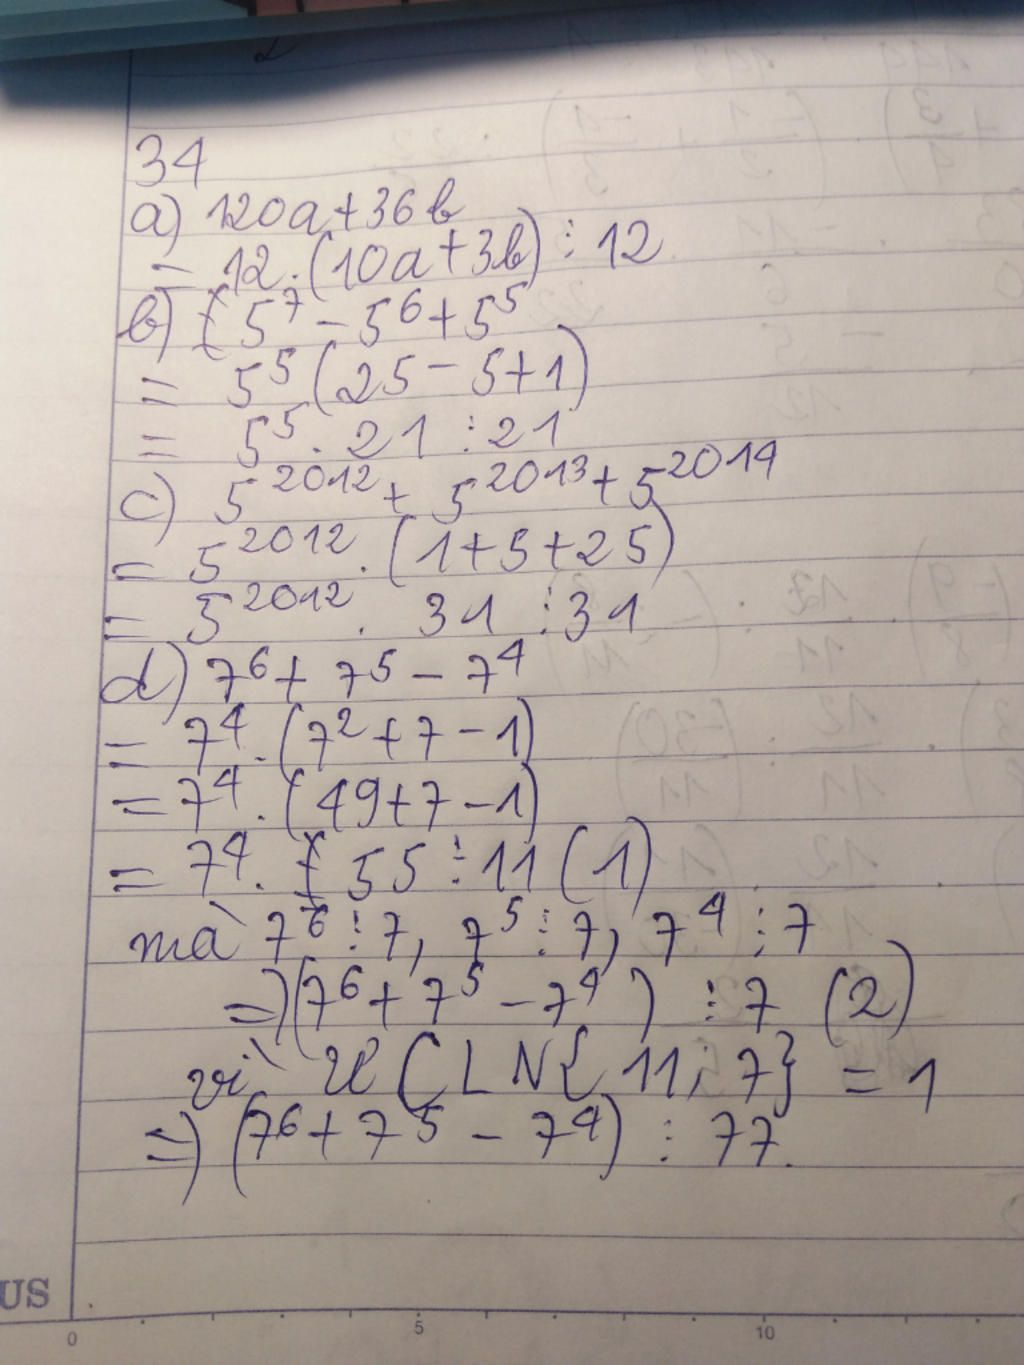 34
a) 120a+36b
= 12.(10a+3b) ⋮ 12
b) 5⁷ - 5⁶ + 5⁵
= 5⁵ (25 - 5+1)
= 5⁵ . 21 ⋮ 21
c) 5²⁰¹² + 5²⁰¹³ + 5²⁰¹⁴
= 5²⁰¹² . (1+5+25)
= 5²⁰¹² . 31 ⋮ 31
d) 7⁶ + 7⁵ - 7⁴
= 7⁴ . (7² + 7 - 1)
= 7⁴ . (49+7-1)
= 7⁴ . 55 ⋮ 11 (1)
mà 7⁶ ⋮ 7, 7⁵ ⋮ 7, 7⁴ ⋮ 7
=> (7⁶ + 7⁵ - 7⁴) ⋮ 7 (2)
vì ƯCLN{11; 7} = 1
=> (7⁶ + 7⁵ - 7⁴) ⋮ 77.
US
0 5 10